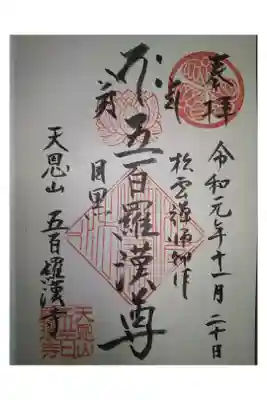 奉拝
令和元年十一月二十日
松雲禅師御作
五百羅漢尊
目黒
天恩山 五百羅漢寺
天恩山
五百
羅漢寺